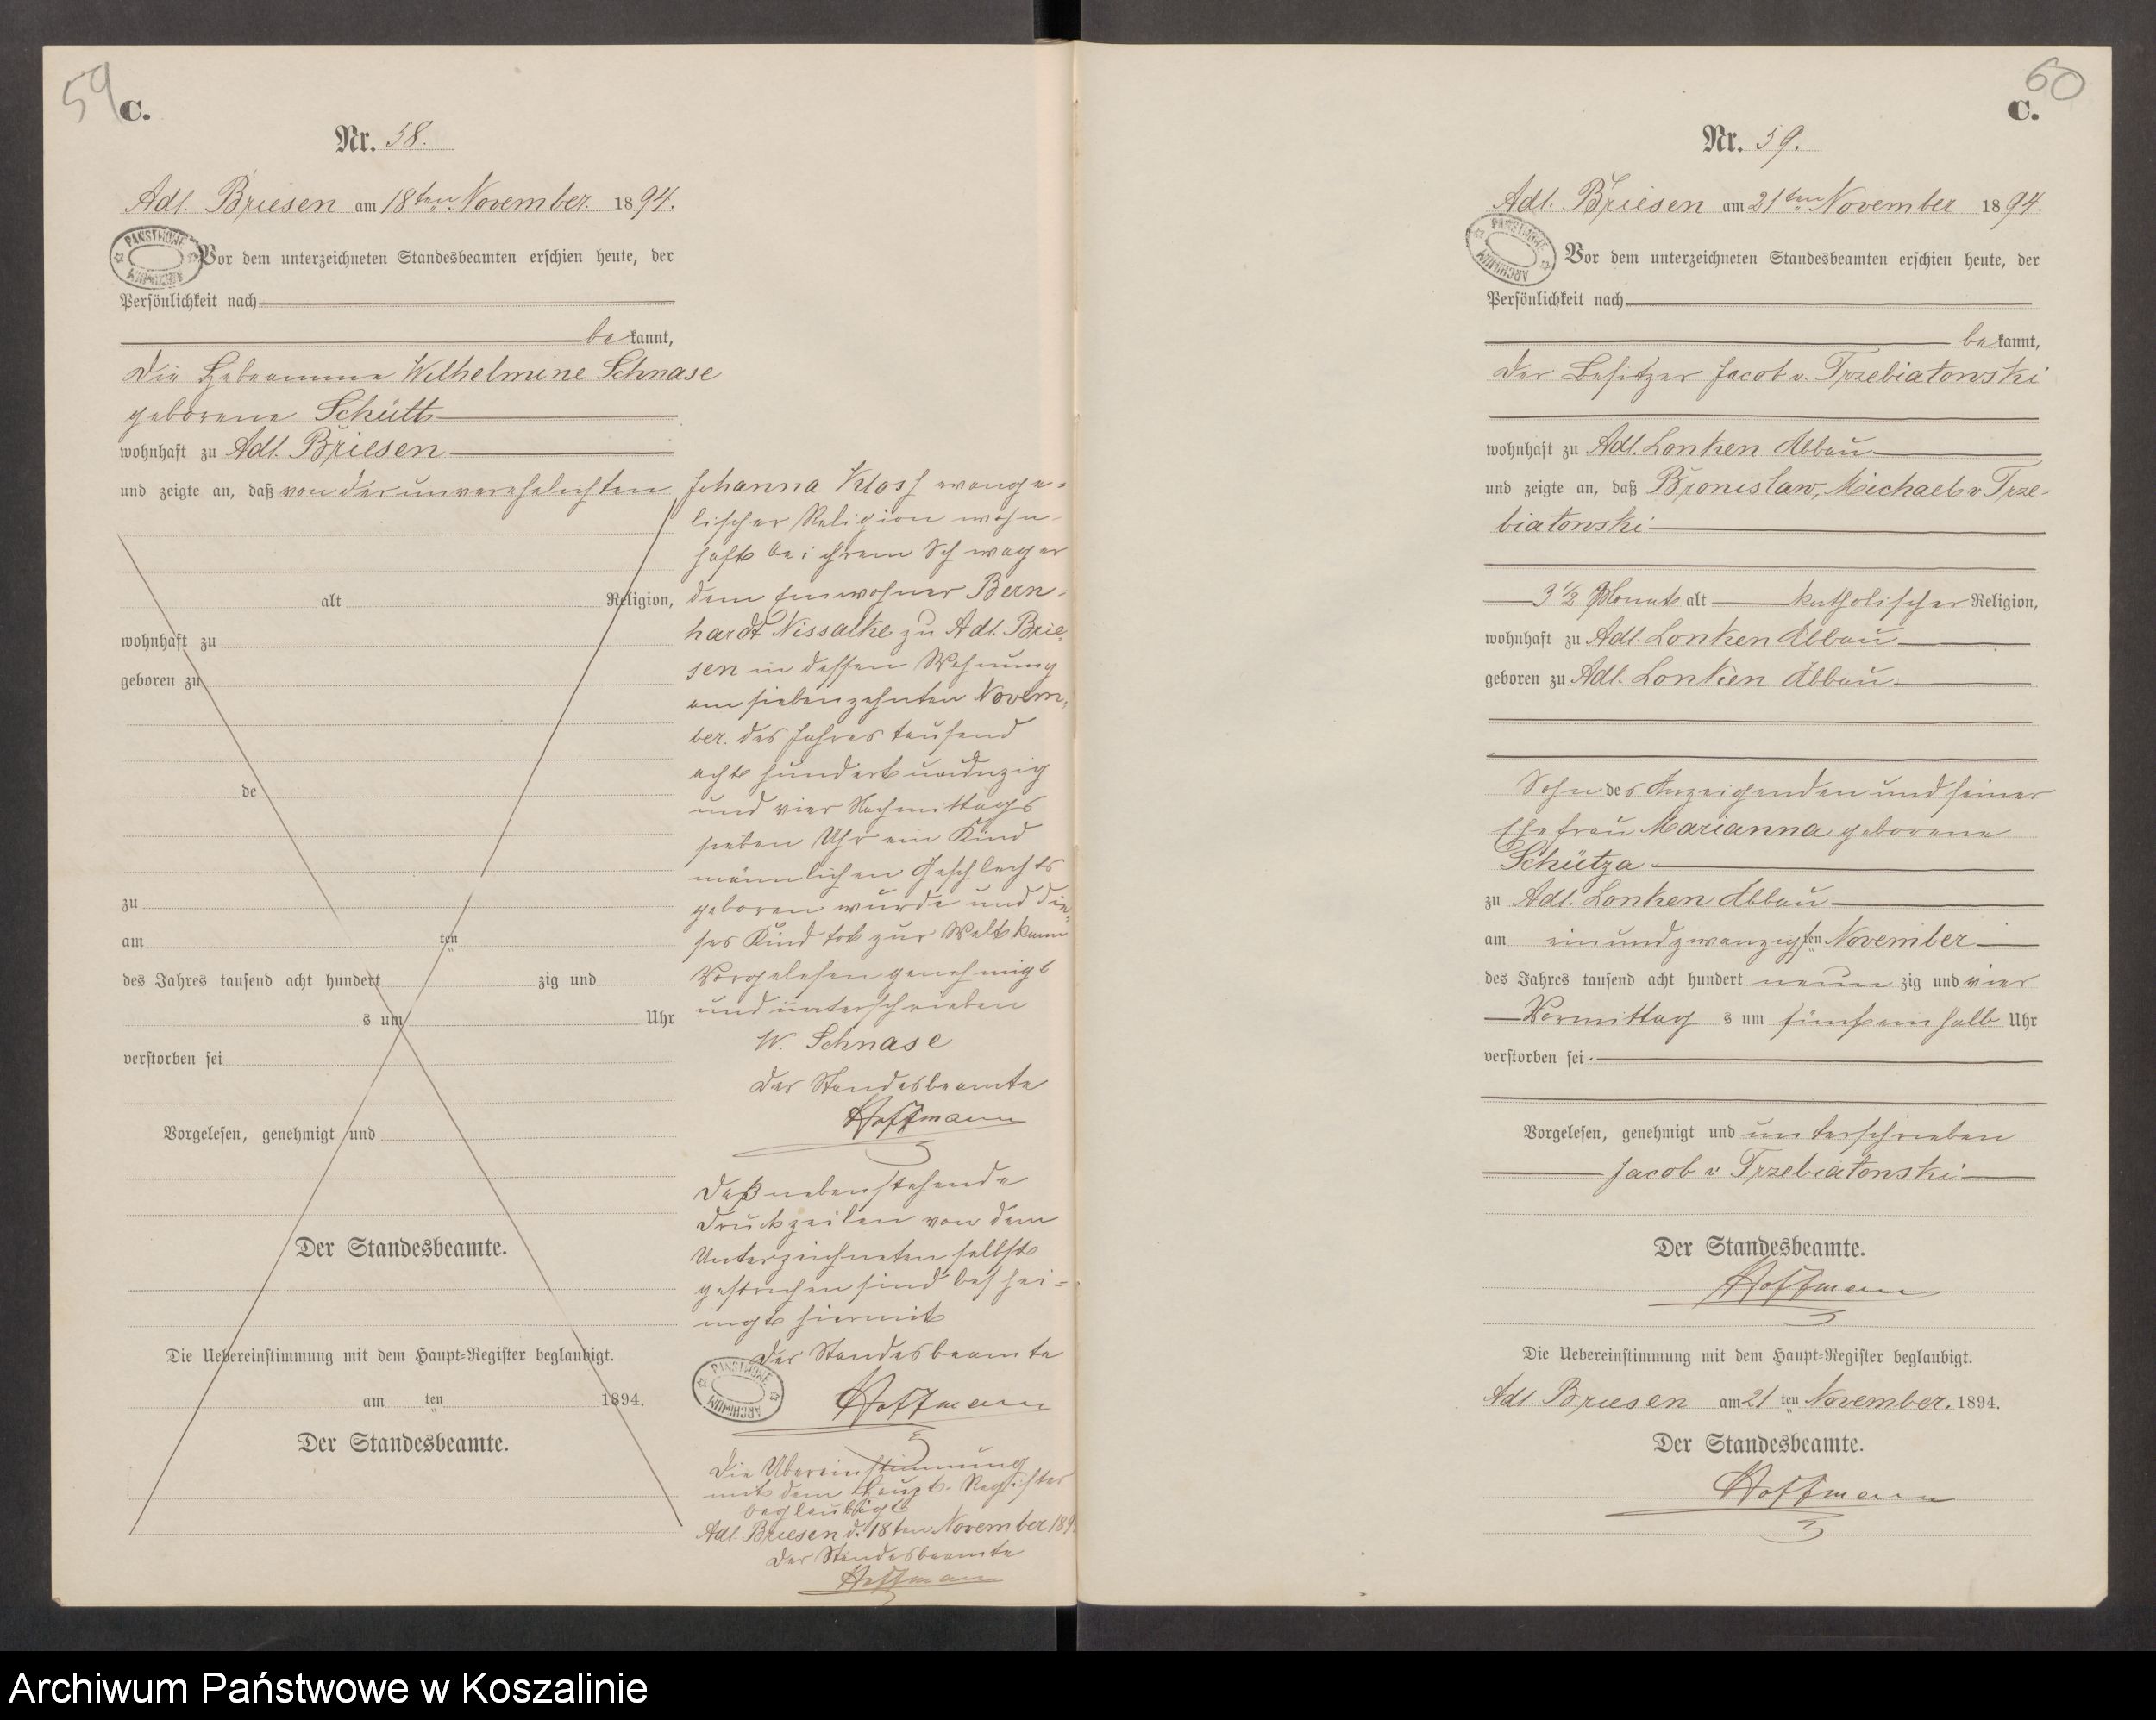 59
C.
Nr. 58.
Adl. Briesen am 18ten November 1894.
PAŃSTWOWE ARCHIWUM
Vor dem unterzeichneten Standesbeamten erschien heute, der
Persönlichkeit nach
be kannt,
die Hebeamme Wilhelmine Schnase
geborene Schütt
wohnhaft zu Adl. Briesen
und zeigte an, daß von der unverehelichten
alt Religion,
wohnhaft zu
geboren zu
de
zu
am ten
des Jahres tausend acht hundert zig und
s um Uhr
verstorben sei
Vorgelesen, genehmigt und
Der Standesbeamte.
Die Uebereinstimmung mit dem Haupt-Register beglaubigt.
am ten 1894.
Der Standesbeamte.
Johanna Kloss evange-
lischer Religion wohn-
haft bei ihrem Schwager
dem Einwohner Bern-
hardt Nissalke zu Adl. Brie-
sen in dessen Wohnung
am siebenzehnten Novem-
ber des Jahres tausend
acht hundert
und vier Nachmittags
sieben Uhr ein Kind
männlichen Geschlechts
geboren wurde und die-
ses Kind tot zur Welt kam
Vorgelesen genehmigt
und unterschrieben
W. Schnase
Der Standesbeamte
Hoffmann
Daß nebenstehende
Druckzeilen von dem
Unterzeichneten selbst
gestrichen sind beschei-
nigt hiermit
Der Standesbeamte
PAŃSTWOWE ARCHIWUM
Hoffmann
Die Übereinstimmung
mit dem Haupt-Register
beglaubigt
Adl. Briesen d. 18ten November 189
Der Standesbeamte
Hoffmann
60
C.
Nr. 59.
Adl. Briesen am 21ten November 1894.
PAŃSTWOWE ARCHIWUM
Vor dem unterzeichneten Standesbeamten erschien heute, der
Persönlichkeit nach
be kannt,
der Besitzer Jacob v. Trzebiatowski
wohnhaft zu Adl. Lonken Abbau
und zeigte an, daß Bronislaw, Michael v Trze-
biatowski
3 1/2 Monat alt katholischer Religion,
wohnhaft zu Adl. Lonken Abbau
geboren zu Adl. Lonken Abbau
Sohn des Anzeigenden und seiner
Ehefrau Marianna geborene
Schütza
zu Adl. Lonken Abbau
am einundzwanzigsten November
des Jahres tausend acht hundert neun zig und vier
Vormittag s um fünfeinhalb Uhr
verstorben sei.
Vorgelesen, genehmigt und unterschrieben
Jacob v Trzebiatowski
Der Standesbeamte.
Hoffmann
Die Uebereinstimmung mit dem Haupt-Register beglaubigt.
Adl. Briesen am 21 ten November. 1894.
Der Standesbeamte.
Hoffmann
Archiwum Państwowe w Koszalinie